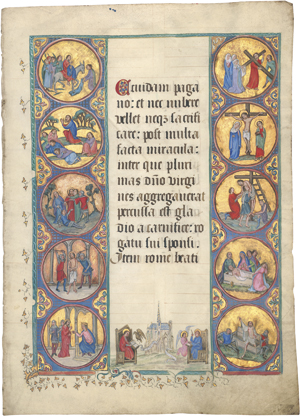 Acuidam paga
no: et nec nubere
vellet necq3 sacrifi
care: post multa
facta miracula:
inter que pluri
mas dño virgi
nes aggregauerat
percussa est gla
dio a carnifice: ro
gatu sui sponsi.
Item rome beati